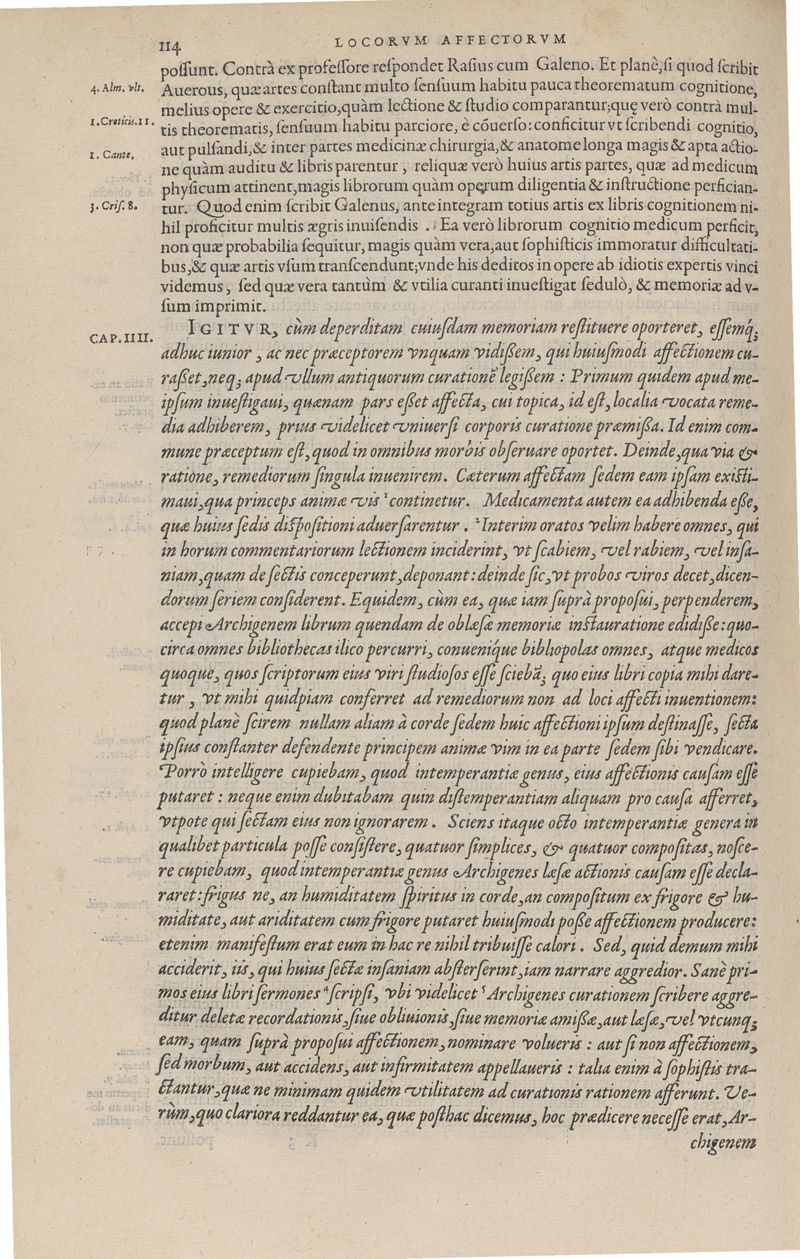 114
LOCORVM AFFECTORVM
poſſunt. Contrà ex profeſſore reſpondet Raſius cum Galeno. Et planè, ſi quod ſcribit
4. Alm. vlt.
Auerous, quæ artes conſtant multo ſenſuum habitu pauca theorematum cognitione,
melius opere & exercitio, quàm lectione & ſtudio comparantur; quę verò contrà mul-
1. Creticis. 11.
tis theorematis, ſenſuum habitu parciore, è cóuerſo: conficitur vt ſcribendi cognitio,
1. Cante.
aut pulſandi, & inter partes medicinæ chirurgia, & anatome longa magis & apta actio-
ne quàm auditu & libris parentur, reliquæ verò huius artis partes, quæ ad medicum
phyſicum attinent, magis librorum quàm operum diligentia & inſtructione perfician-
3. Criſ. 8.
tur. Quod enim ſcribit Galenus, ante integram totius artis ex libris cognitionem ni-
hil proficitur multis ægris inuiſendis. Ea verò librorum cognitio medicum perficit,
non quæ probabilia ſequitur, magis quàm vera; aut ſophiſticis immoratur difficultati-
bus, & quæ artis vſum tranſcendunt; vnde his deditos in opere ab idiotis expertis vinci
videmus, ſed quæ vera tantùm & vtilia curanti inueſtigat ſedulò, & memoriæ ad v-
ſum imprimit.
CAP. IIII.
IGITVR, cùm deperditam cuiuſdam memoriam reſtituere oporteret, eſſemq́;
adhuc iunior, ac nec præceptorem vnquam vidißem, qui huiuſmodi affectionem cu-
raßet, neq; apud vllum antiquorum curationẽ legißem: Primum quidem apud me-
ipſum inueſtigaui, quænam pars eßet affecta, cui topica, id eſt, localia vocata reme-
dia adhiberem, prius videlicet vniuerſi corporis curatione præmißa. Id enim com-
mune præceptum eſt, quod in omnibus morbis obſeruare oportet. Deinde, qua via &
ratione, remediorum ſingula inuenirem. Cæterum affectam ſedem eam ipſam exiſti-
maui, qua princeps animæ vis ¹ continetur. Medicamenta autem ea adhibenda eße,
quæ huius ſedis diſpoſitioni aduerſarentur. ² Interim oratos velim habere omnes, qui
in horum commentariorum lectionem inciderint, vt ſcabiem, vel rabiem, vel inſa-
niam, quam de ſectis conceperunt, deponant: deinde ſic, vt probos viros decet, dicen-
dorum ſeriem conſiderent. Equidem, cùm ea, quæ iam ſuprà propoſui, perpenderem,
accepi Archigenem librum quendam de oblæſæ memoriæ inſtauratione edidiße: quo-
circa omnes bibliothecas ilico percurri, conueniq́ue bibliopolas omnes, atque medicos
quoque, quos ſcriptorum eius viri ſtudioſos eſſe ſciebã; quo eius libri copia mihi dare-
tur, vt mihi quidpiam conferret ad remediorum non ad loci affecti inuentionem:
quod planè ſcirem nullam aliam à corde ſedem huic affectioni ipſum deſtinaſſe, ſecta
ipſius conſtanter defendente principem animæ vim in ea parte ſedem ſibi vendicare.
Porrò intelligere cupiebam, quod intemperantiæ genus, eius affectionis cauſam eſſe
putaret: neque enim dubitabam quin diſtemperantiam aliquam pro cauſa afferret,
vtpote qui ſectam eius non ignorarem. Sciens itaque octo intemperantiæ genera in
qualibet particula poſſe conſiſtere, quatuor ſimplices, & quatuor compoſitas, noſce-
re cupiebam, quod intemperantiæ genus Archigenes læſæ actionis cauſam eſſe decla-
raret: frigus ne, an humiditatem ſpiritus in corde, an compoſitum ex frigore & hu-
miditate, aut ariditatem cum frigore putaret huiuſmodi poße affectionem producere:
etenim manifeſtum erat eum in hac re nihil tribuiſſe calori. Sed, quid demum mihi
acciderit, iis, qui huius ſectæ inſaniam abſterſerint, iam narrare aggredior. Sanè pri-
mos eius libri ſermones ⁴ ſcripſi, vbi videlicet ⁵ Archigenes curationem ſcribere aggre-
ditur deletæ recordationis, ſiue obliuionis, ſiue memoriæ amißæ, aut læſæ, vel vtcunq;
eam, quam ſuprà propoſui affectionem, nominare volueris: aut ſi non affectionem,
ſed morbum, aut accidens, aut infirmitatem appellaueris: talia enim à ſophiſtis tra-
ctantur, quæ ne minimam quidem vtilitatem ad curationis rationem afferunt. Ve-
rùm, quo clariora reddantur ea, quæ poſthac dicemus, hoc prædicere neceſſe erat, Ar-
chigenem